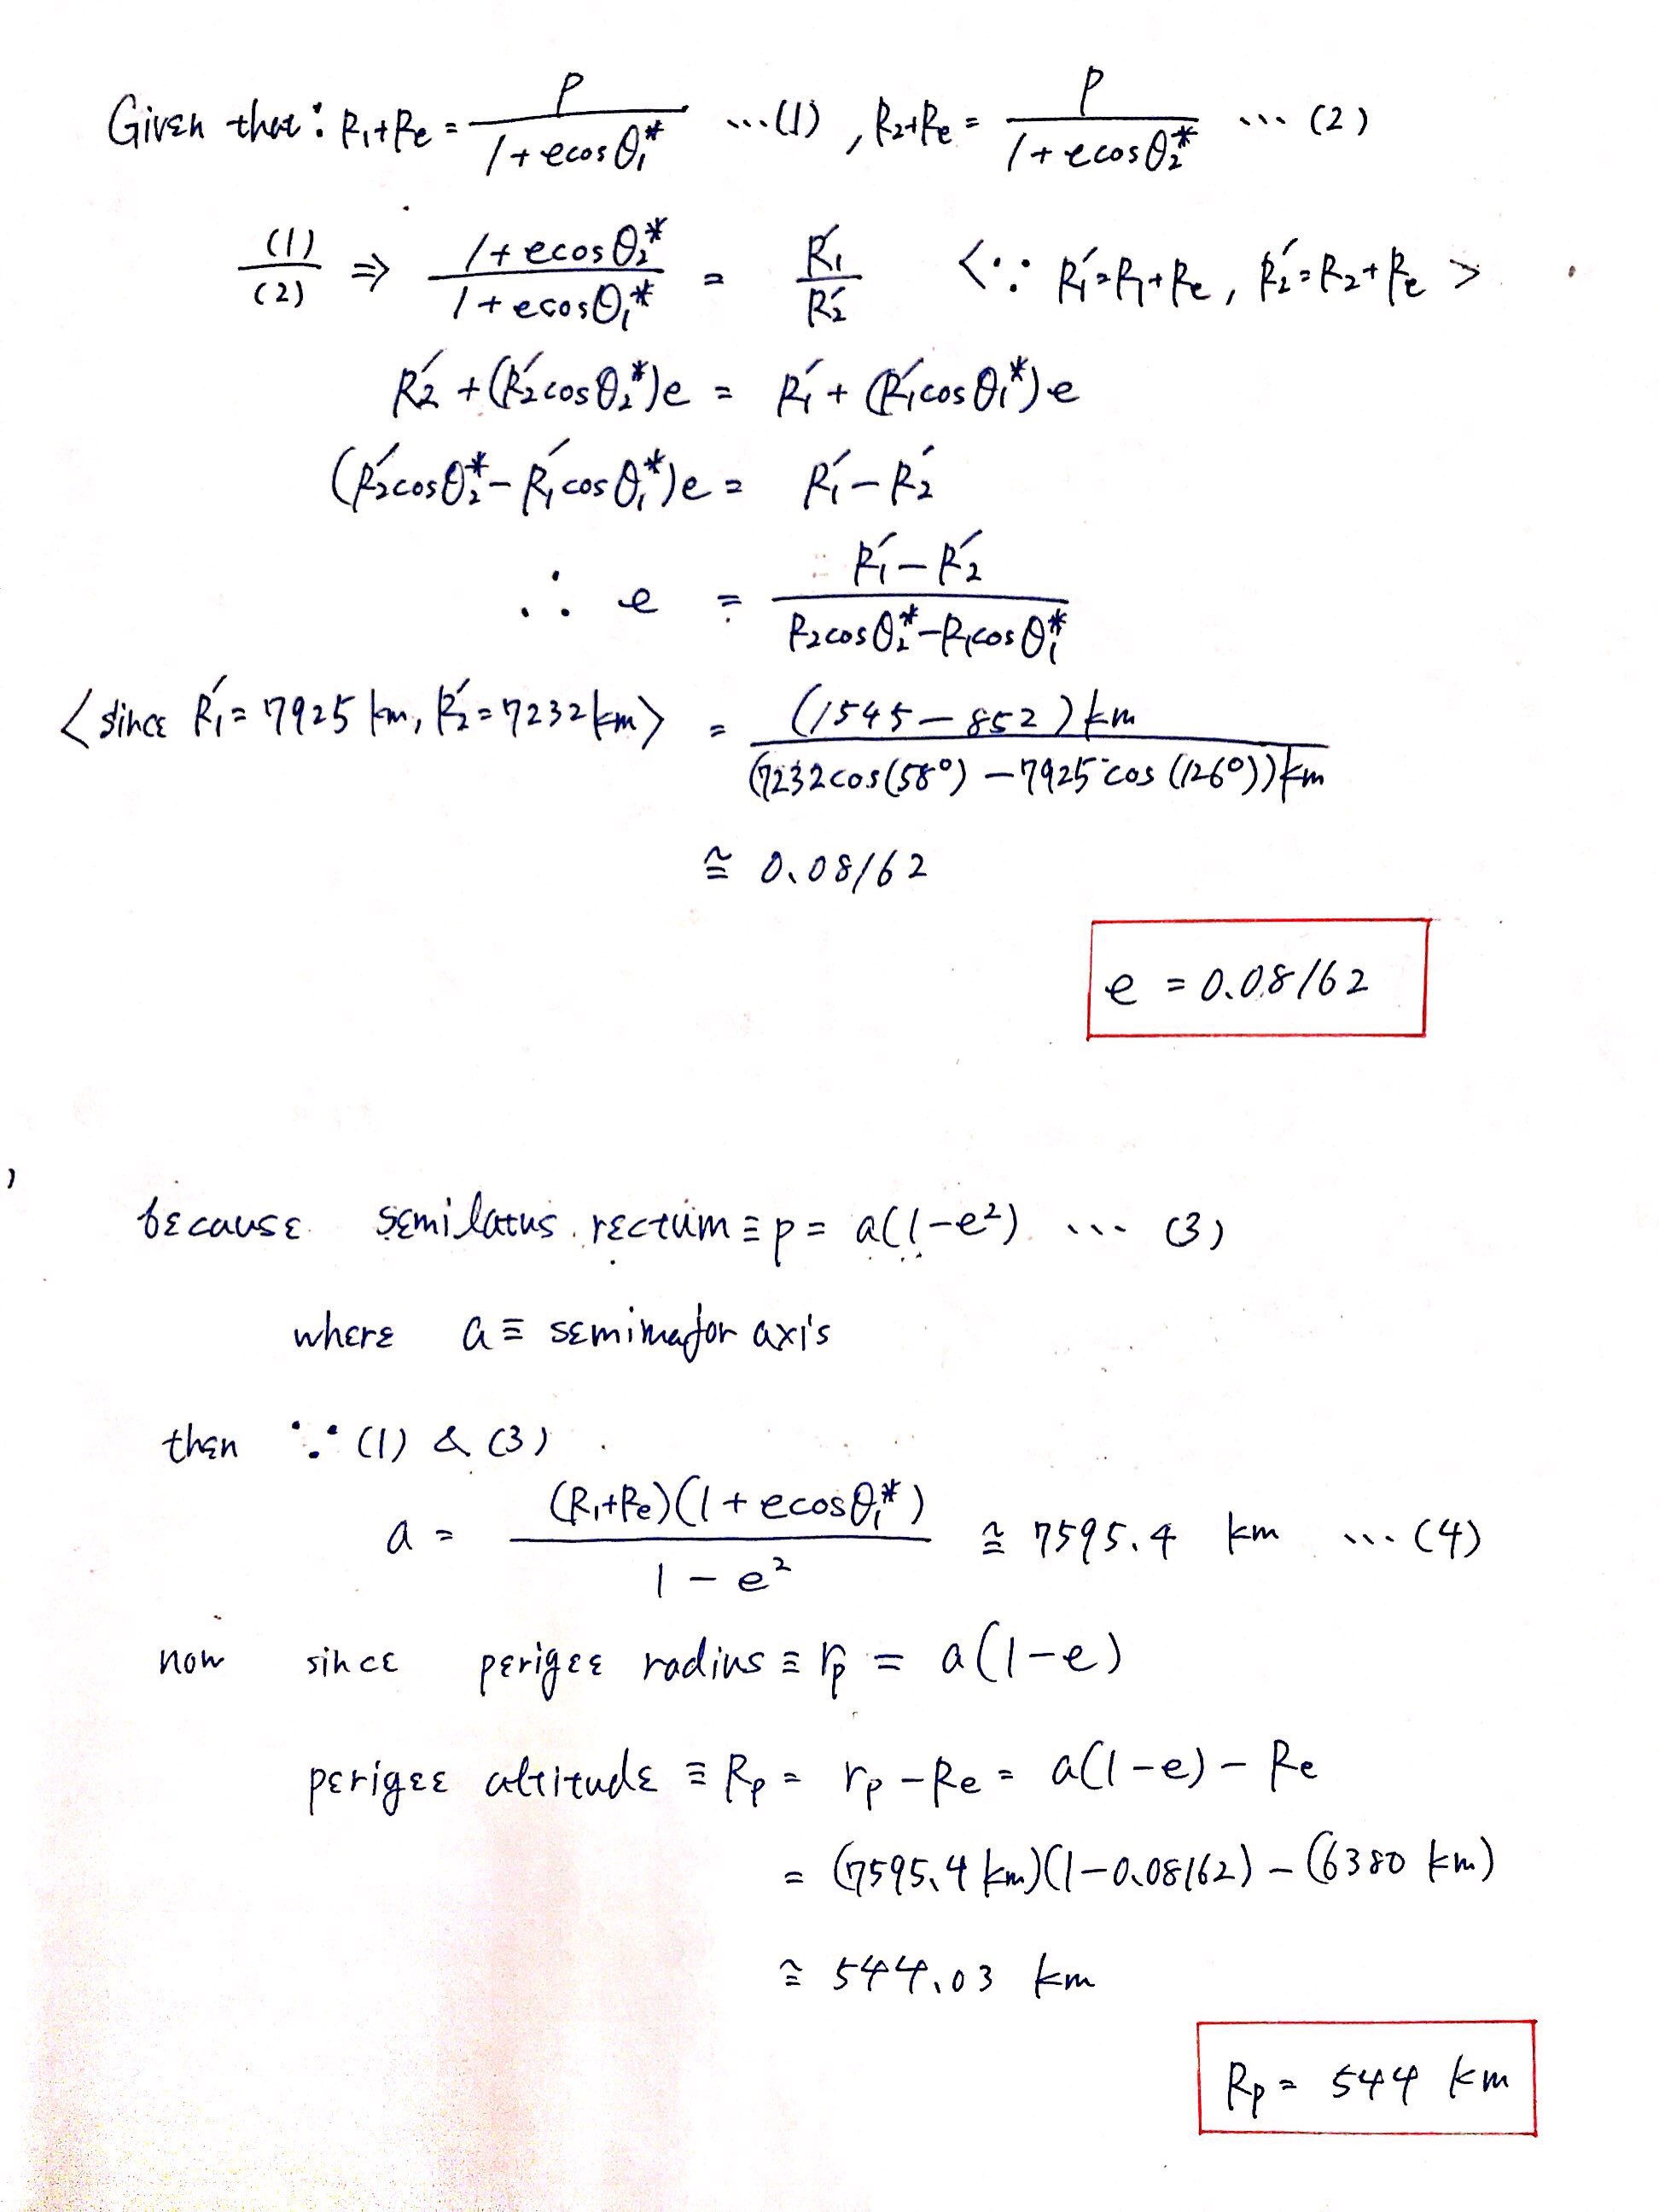 Given that : R₁+Re = P / (1+ecosθ₁*) ...(1) , R₂+Re = P / (1+ecosθ₂*) ... (2)
(1) / (2) ⇒ (1+ecosθ₂*) / (1+ecosθ₁*) = R₁′ / R₂′ <∵ R₁′=R₁+Re, R₂′=R₂+Re >
R₂′ +(R₂′cosθ₂*)e = R₁′+ (R₁′cosθ₁*)e
(R₂′cosθ₂*-R₁′cosθ₁*)e = R₁′-R₂′
∴ e = (R₁′-R₂′) / (R₂cosθ₂*-R₁cosθ₁*)
<since R₁′= 7925 km, R₂′=7232km> = (1545-852)km / (7232cos(58°) -7925cos (126°))km
≅ 0.08162
e = 0.08162
,
because semilatus rectum ≡ p = a(1-e²) ... (3)
where a ≡ semimajor axis
then ∵ (1) & (3)
a = (R₁+Re)(1+ecosθ₁*) / (1-e²) ≅ 7595.4 km ... (4)
now since perigee radius ≡ rp = a(1-e)
perigee altitude ≡ Rp = rp-Re = a(1-e)-Re
= (7595.4 km)(1-0.08162)-(6380 km)
≅ 544.03 km
Rp = 544 km